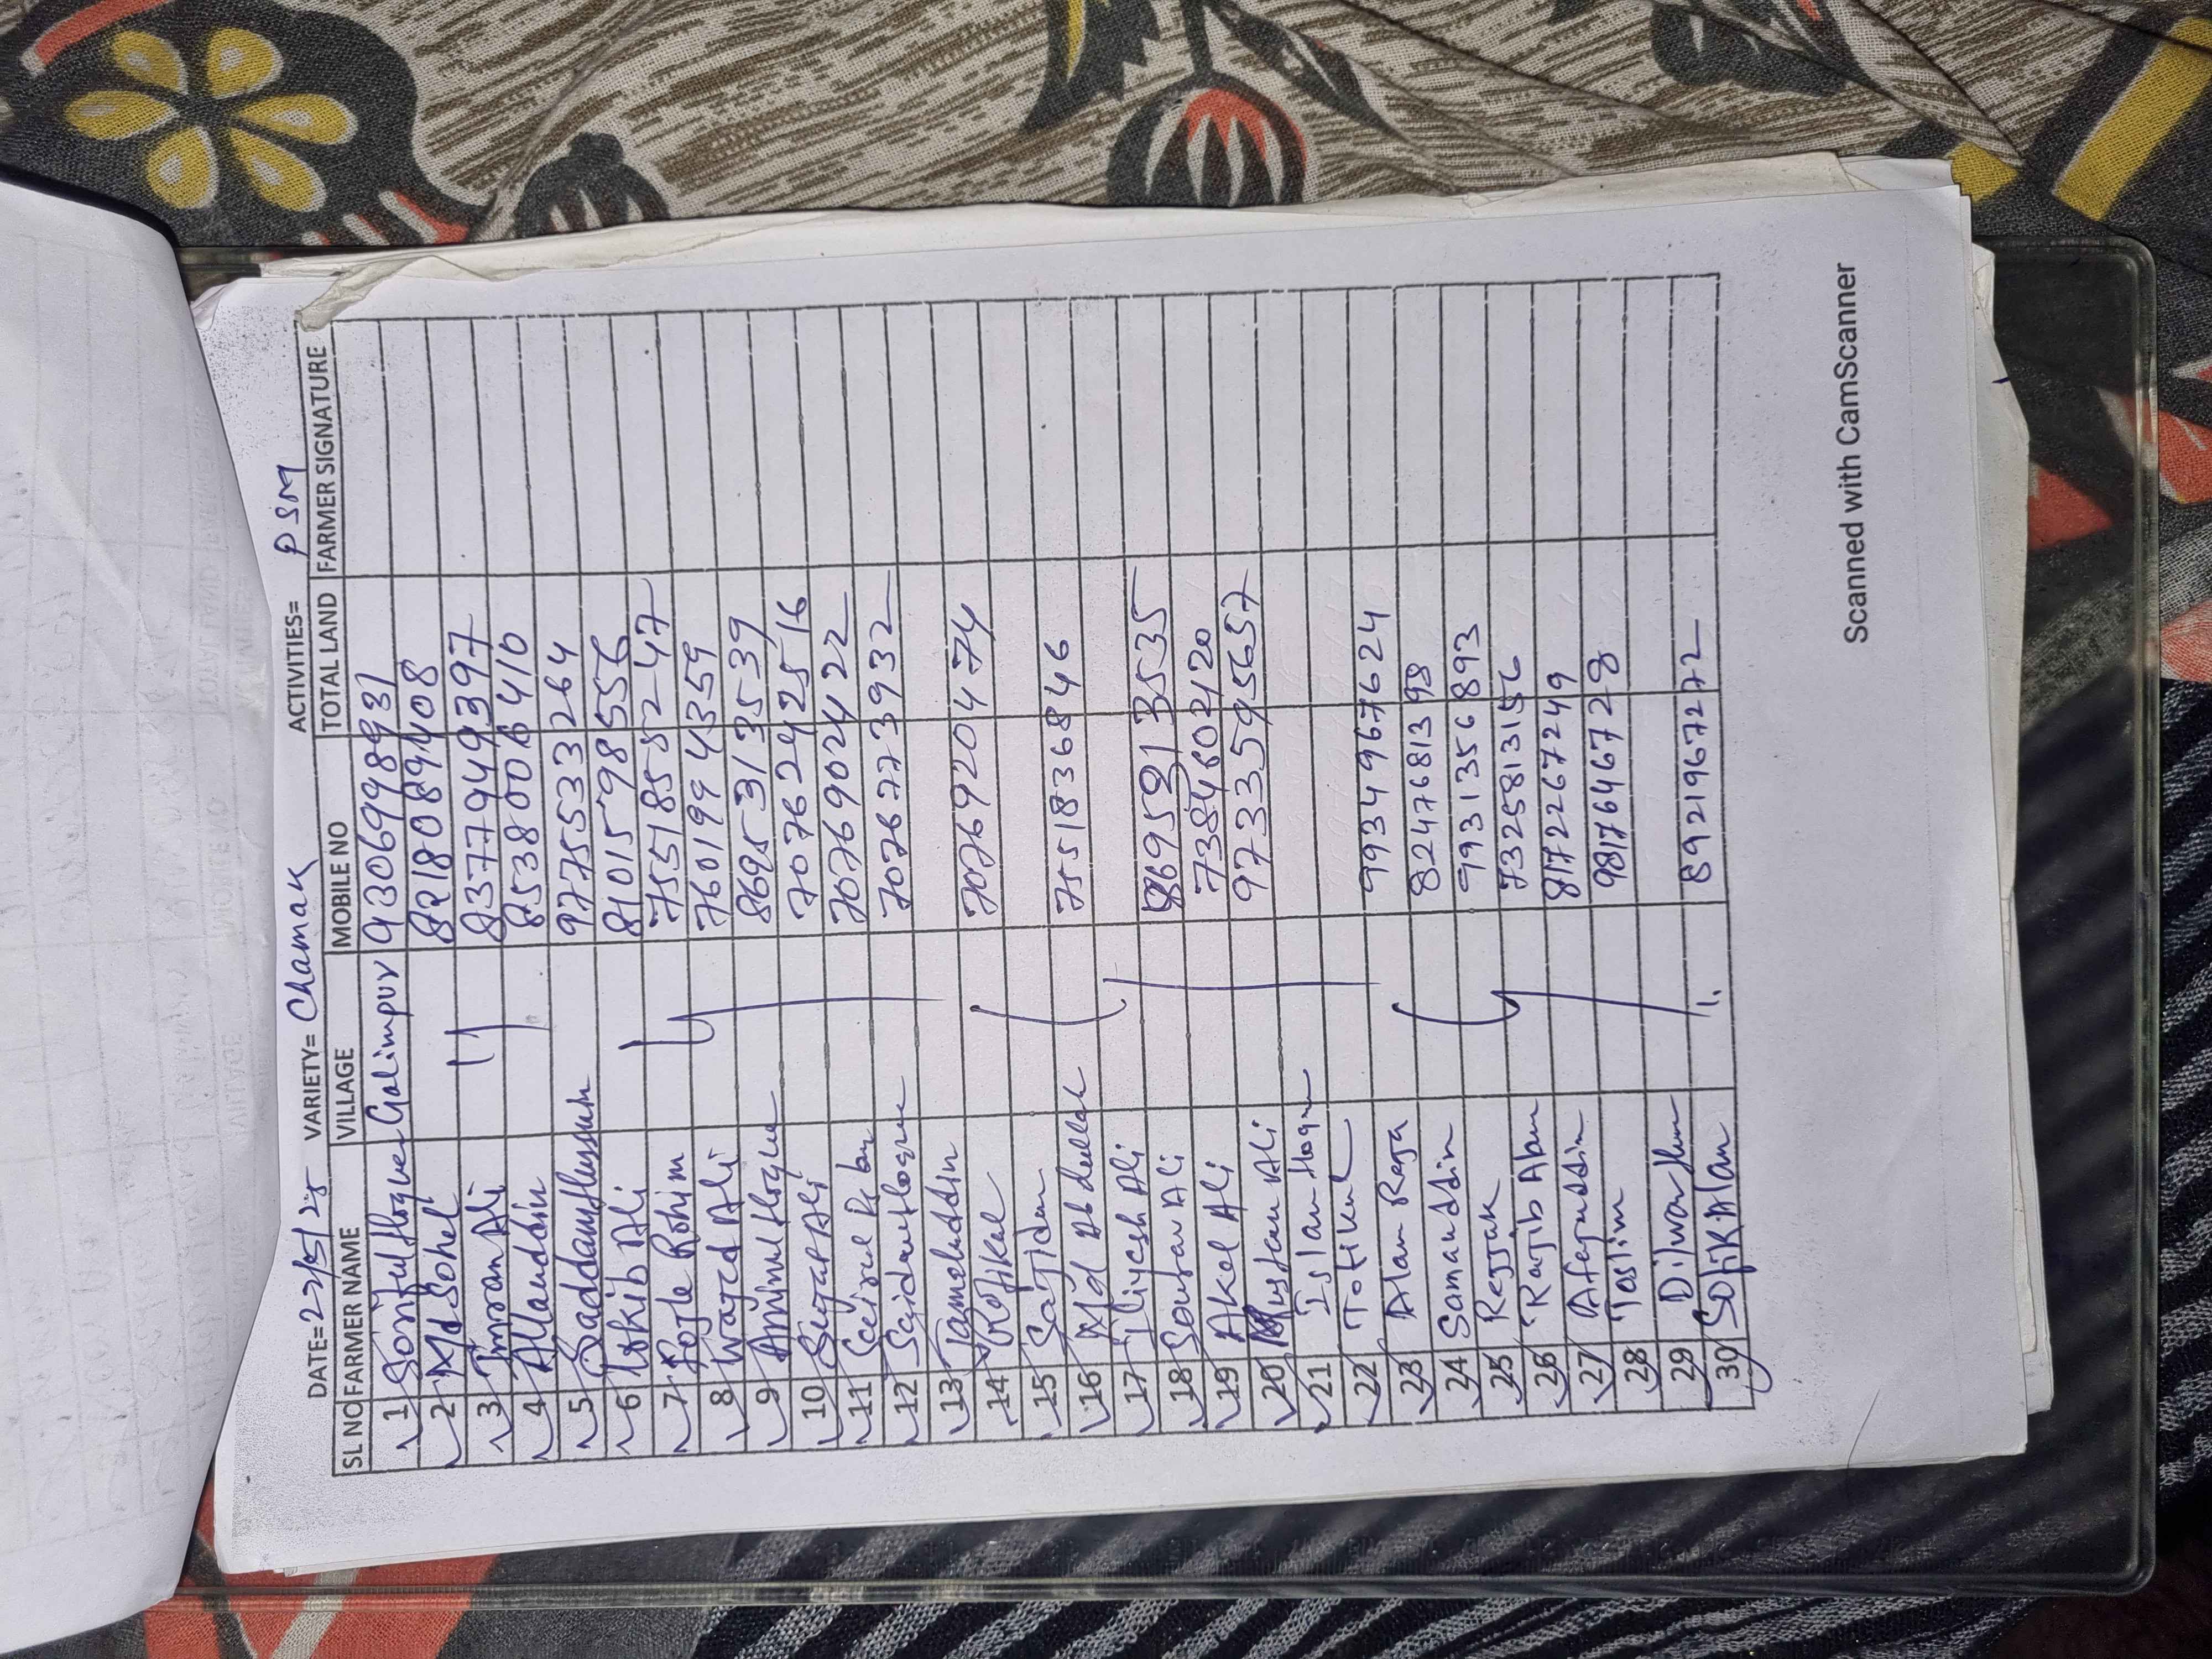 DATE= 22/5/25 VARIETY= Chamak ACTIVITIES= PSM
SL NO FARMER NAME VILLAGE MOBILE NO TOTAL LAND FARMER SIGNATURE
1 Soriful Hoque Galimpur 9306998931
2 Md Sohel 8218089408
3 Imran Ali 8377949397
4 Allauddin 8538006410
5 Saddam Hussain 9775533264
6 Rokib Ali 8101598556
7 Fojle Rohim 7551858247
8 Wajed Ali 7601994359
9 Aminul Hoque 8695313539
10 Ali 7076242516
11 7076902422
12 Hoque 7076773932
13 Jameluddin
14 Rofikul 7076920474
15
16 Md Abdullah 7551836846
17 Iliyash Ali
18 Ali 8695913535
19 Akel Ali 7384602120
20 Mustan Ali 9733595657
21 Islam Hoque
22 Tofikul
23 Alam Reja 9934967624
24 Samauddin 8247681398
25 Rejjak 9931356893
26 Rajib Alam
27 8172267249
28 Taslim 9817646728
29
30 Sofik Alam 8921967272
Scanned with CamScanner